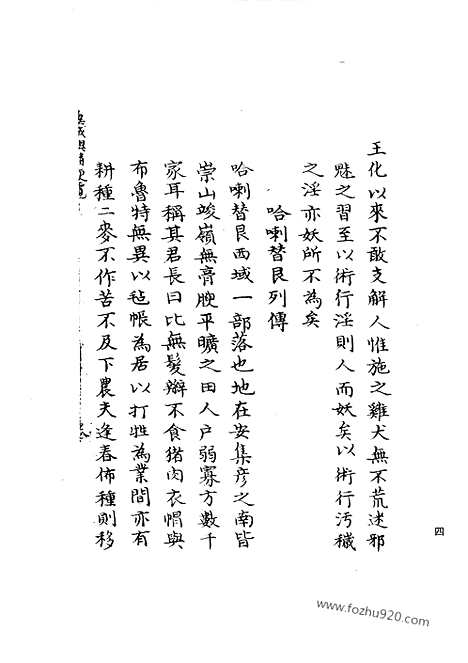 王化以來不敢支解人惟施之雞犬無不荒迷邪
魅之習至以術行淫則人而妖矣以術行污穢
之淫亦妖所不為矣
哈喇替艮列傳
哈喇替艮西域一部落也地在安集彦之南皆
崇山峻嶺無膏腴平曠之田人户弱寡方數千
家耳稱其君長曰比無髮辮不食猪肉衣帽與
布魯特無異以毡帳為居以打牲為業間亦有
耕種二麥不作苦不及下農夫逢春佈種則移
四
www.fozhu920.com